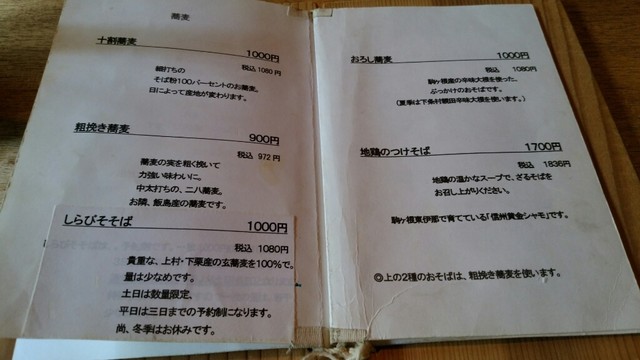 蕎麦
十割蕎麦
1000円
税込 1080円
細打ちの
そば粉100パーセントのお蕎麦。
日によって産地が変わります。
粗挽き蕎麦
900円
税込 972円
蕎麦の実を粗く挽いて
力強い味わいに。
中太打ちの、二八蕎麦。
お隣、飯島産の蕎麦です。
しらびそそば
1000円
税込 1080円
貴重な、上村・下栗産の玄蕎麦を100%で。
量は少なめです。
土日は数量限定、
平日は三日までの予約制になります。
尚、冬季はお休みです。
おろし蕎麦
1000円
税込 1080円
駒ヶ根産の辛味大根を使った、
ぶっかけのおそばです。
(夏季は下条村親田辛味大根を使います。)
地鶏のつけそば
1700円
税込 1836円
地鶏の温かなスープで、ざるそばを
お召し上がりください。
駒ヶ根東伊那で育てている「信州黄金シャモ」です。
◎上の2種のおそばは、粗挽き蕎麦を使います。